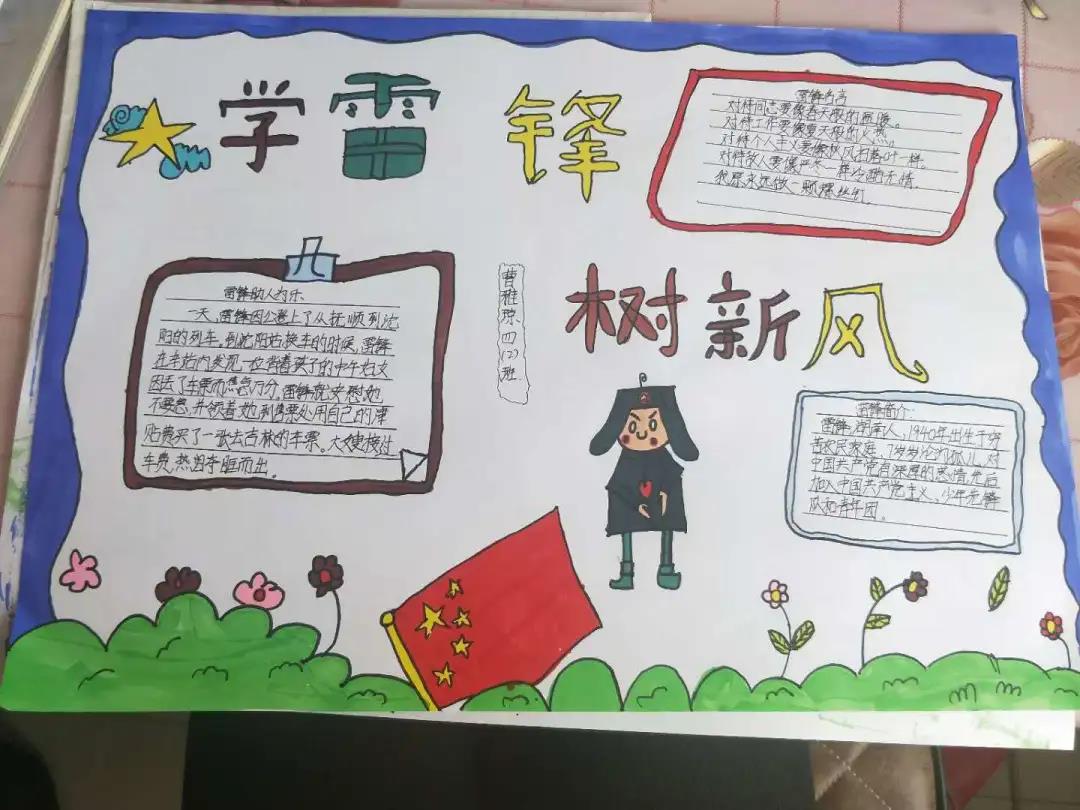 学雷锋
雷锋名言
对待同志要像春天般的温暖。
对待工作要像夏天般的火热。
对待个人主义要像秋风扫落叶一样。
对待敌人要像严冬一样冷酷无情。
我愿永远做一颗螺丝钉。
树新风
曹雅琼 四(2)班
雷锋助人为乐.
一天,雷锋因公登上了从抚顺到沈
阳的列车。到沈阳站换车的时候,雷锋
在车站内发现一位背着孩子的中年妇女
因丢了车票而焦急万分,雷锋就安慰她
不要急,并领着她到售票处用自己的津
贴费买了一张去吉林的车票。大嫂接过
车费,热泪夺眶而出。
雷锋简介:
雷锋,湖南人,1940年出生于穷
苦农民家庭,7岁沦为孤儿,对
中国共产党有深厚的感情,先后
加入中国共产党主义、少年先锋
队和青年团。